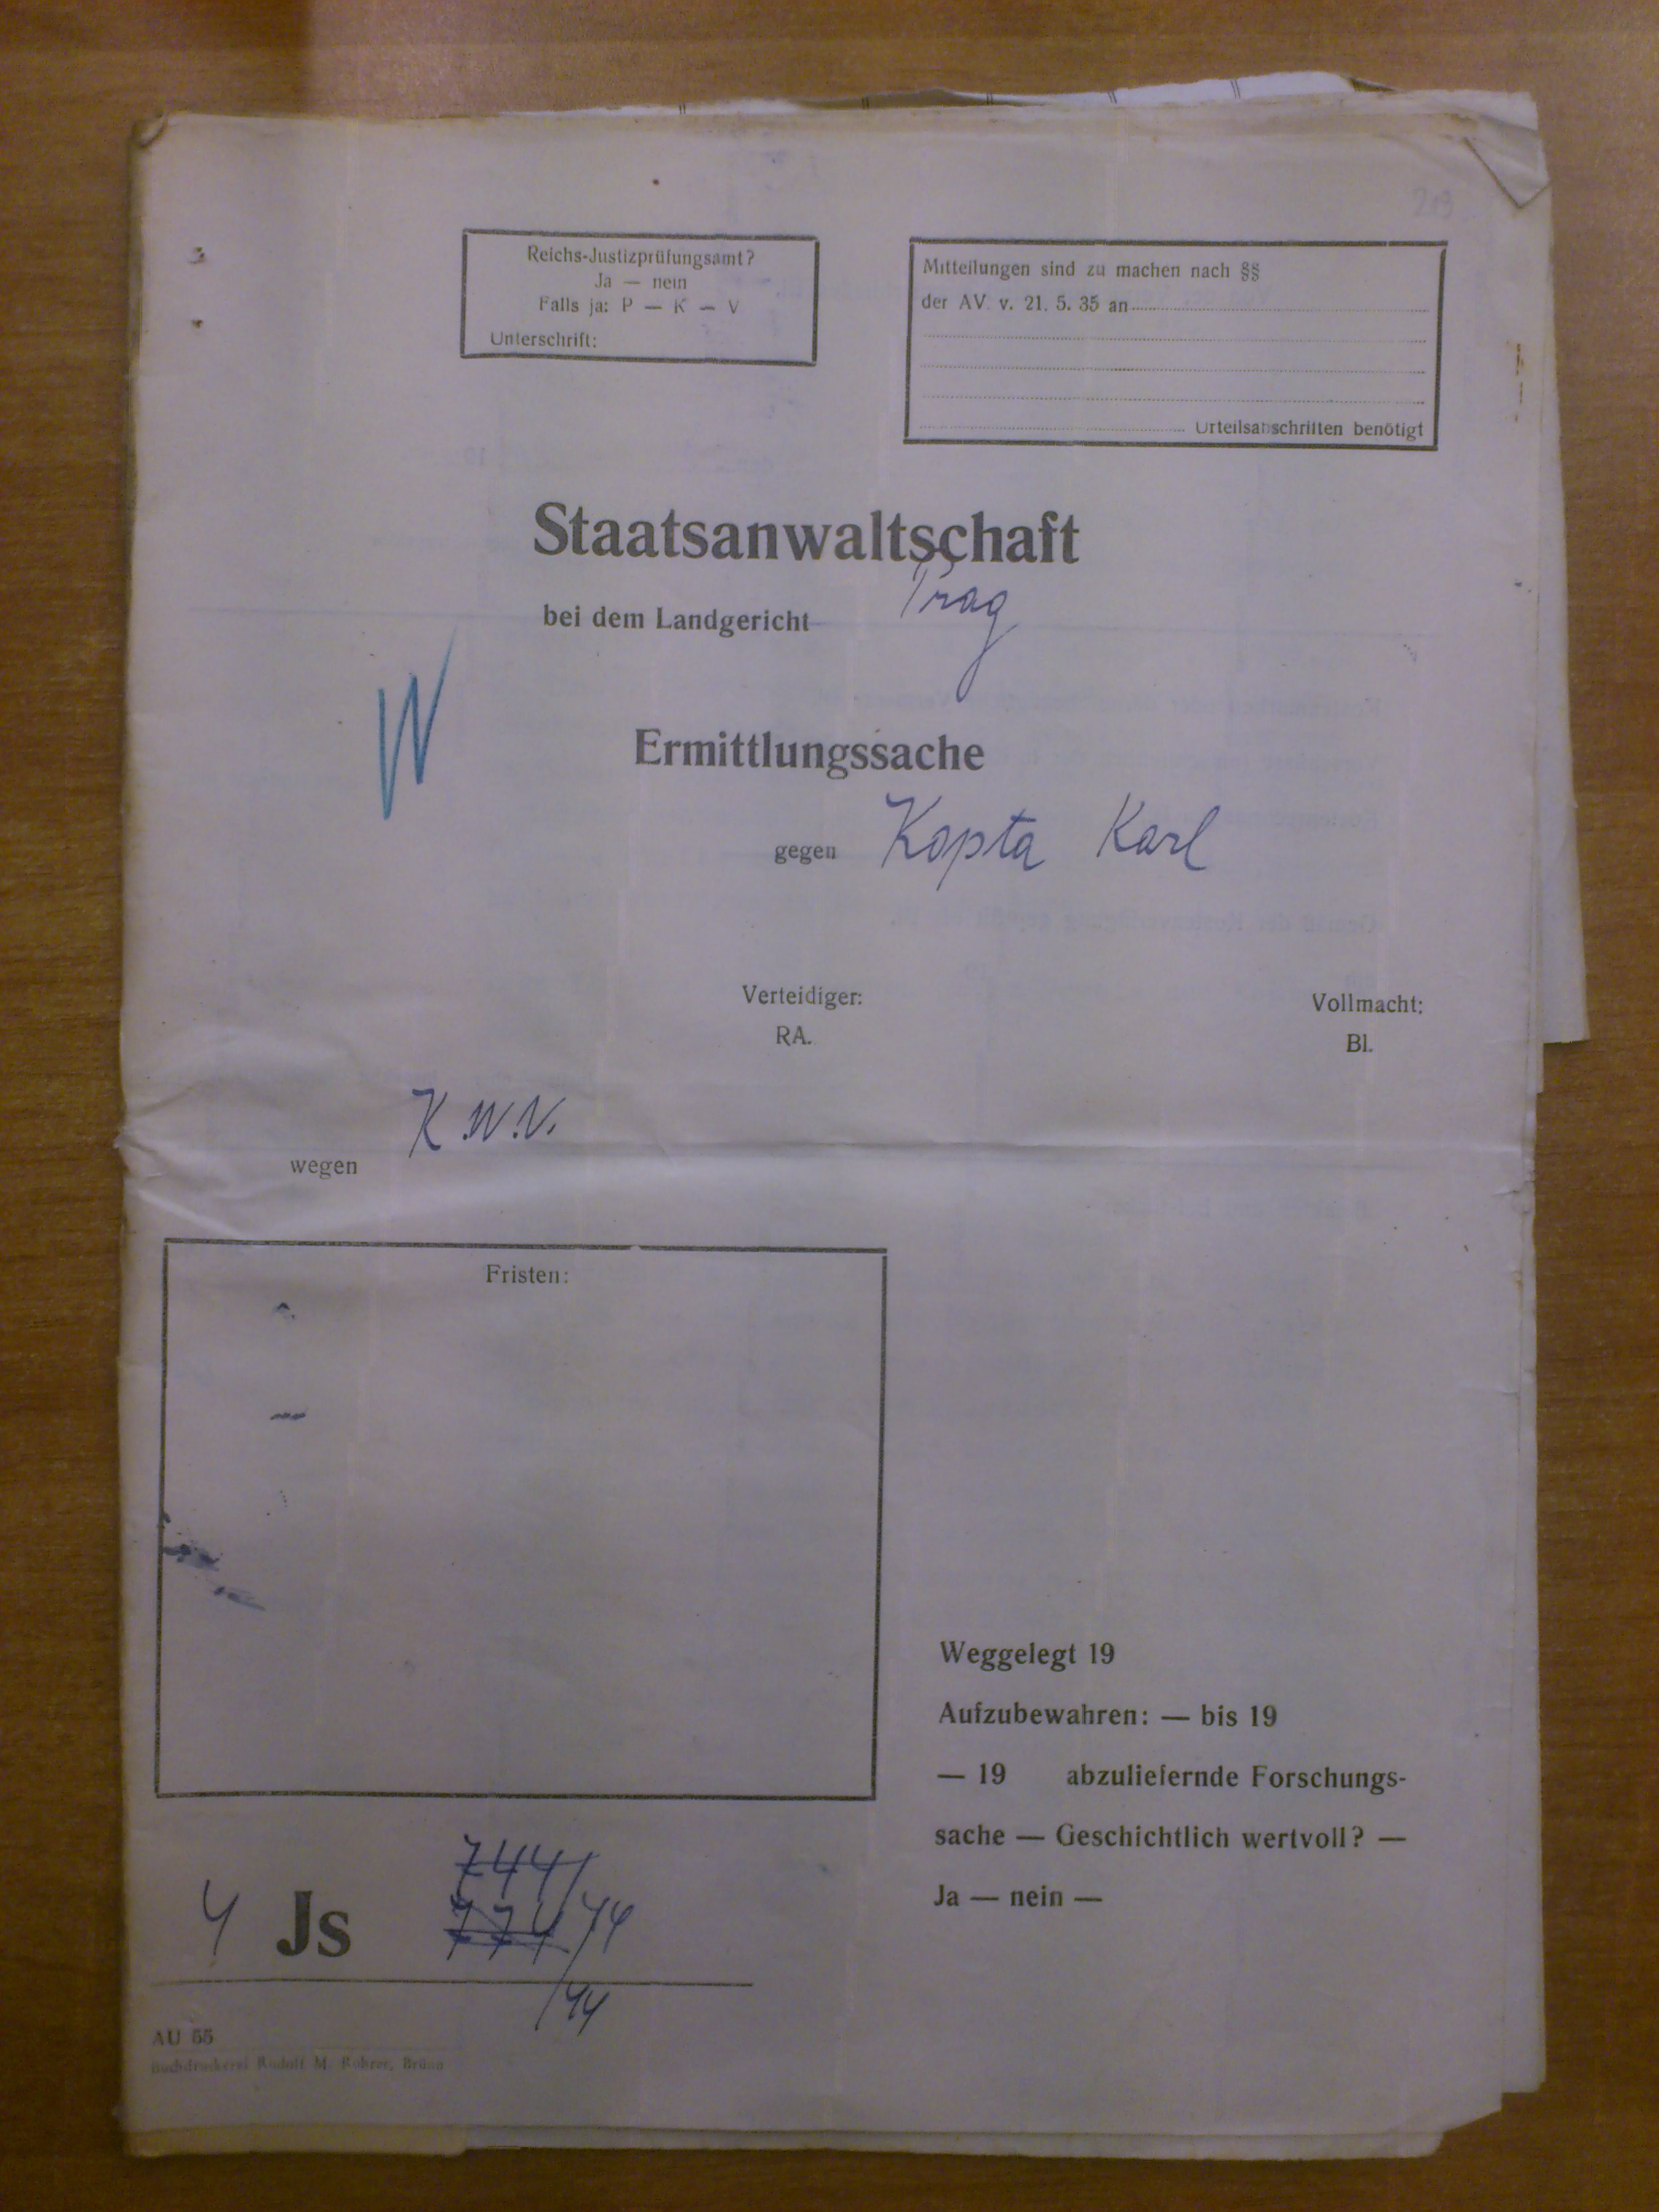 209
Reichs-Justizprüfungsamt?
Ja — nein
Falls ja: P — K — V
Unterschrift:
Mitteilungen sind zu machen nach §§
der AV. v. 21. 5. 35 an
Urteilsabschriften benötigt
Staatsanwaltschaft
bei dem Landgericht Prag
W
Ermittlungssache
gegen Kopta Karl
Verteidiger:
RA.
Vollmacht:
Bl.
wegen K.W.V.
Fristen:
Weggelegt 19
Aufzubewahren: — bis 19
— 19 abzuliefernde Forschungs-
sache — Geschichtlich wertvoll? —
Ja — nein —
744/
4 Js 774/44
/44
AU 55
Buchdruckerei Rudolf M. Rohrer, Brünn